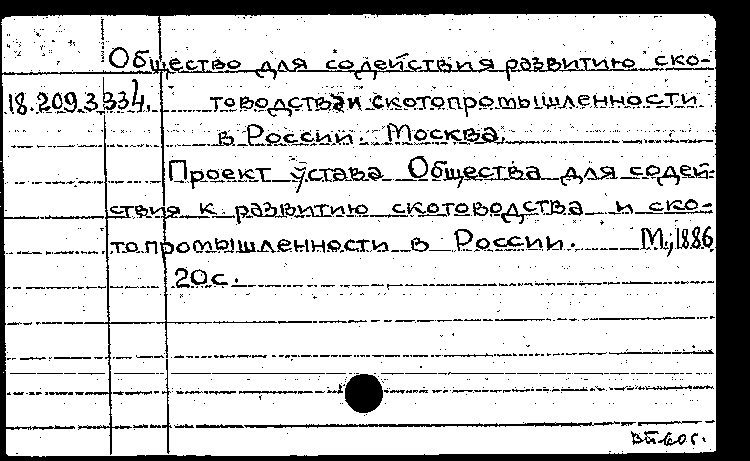 Общество для содействия развитию ско-
18.209.3.334. товодства и скотопромышленности
в России. Москва.
Проект устава Общества для содей-
ствия к развитию скотоводства и ско-
топромышленности в России. М., 1886
20 с.